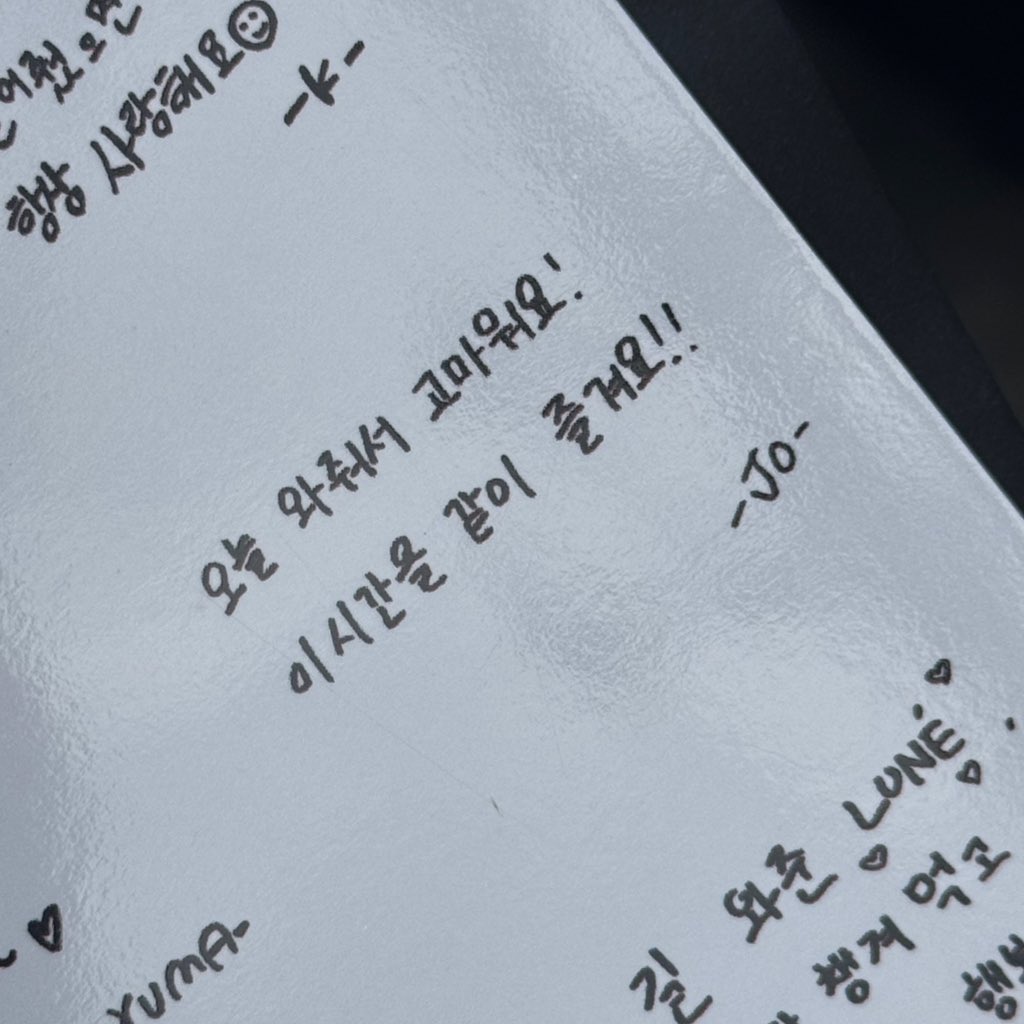 줬으면
항상 사랑해요
-K-
오늘 와줘서 고마워요!
이 시간을 같이 즐겨요!!
-JO-
YUMA-
와준 LUNÉ
챙겨 먹고